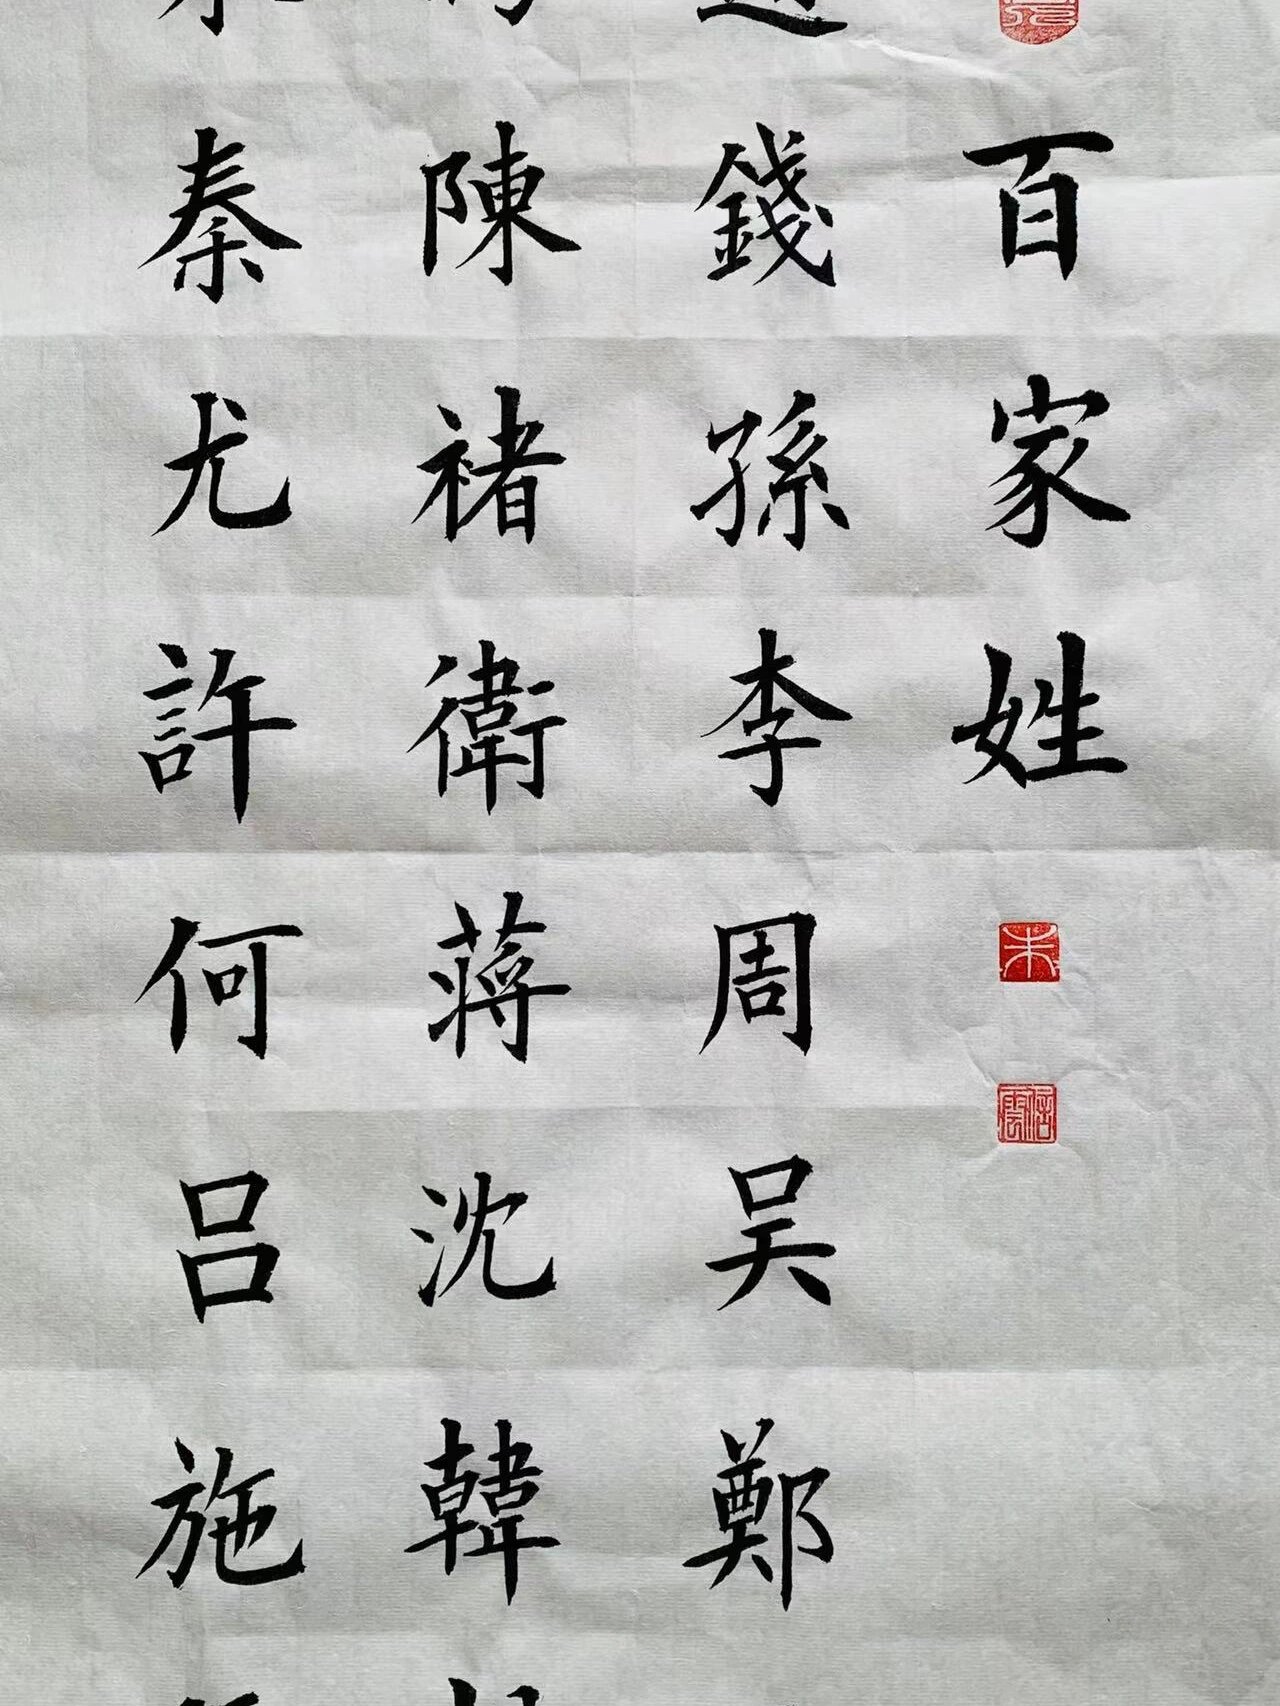 百家姓
錢孫李周吴鄭
陳褚衛蒋沈韓
秦尤許何吕施